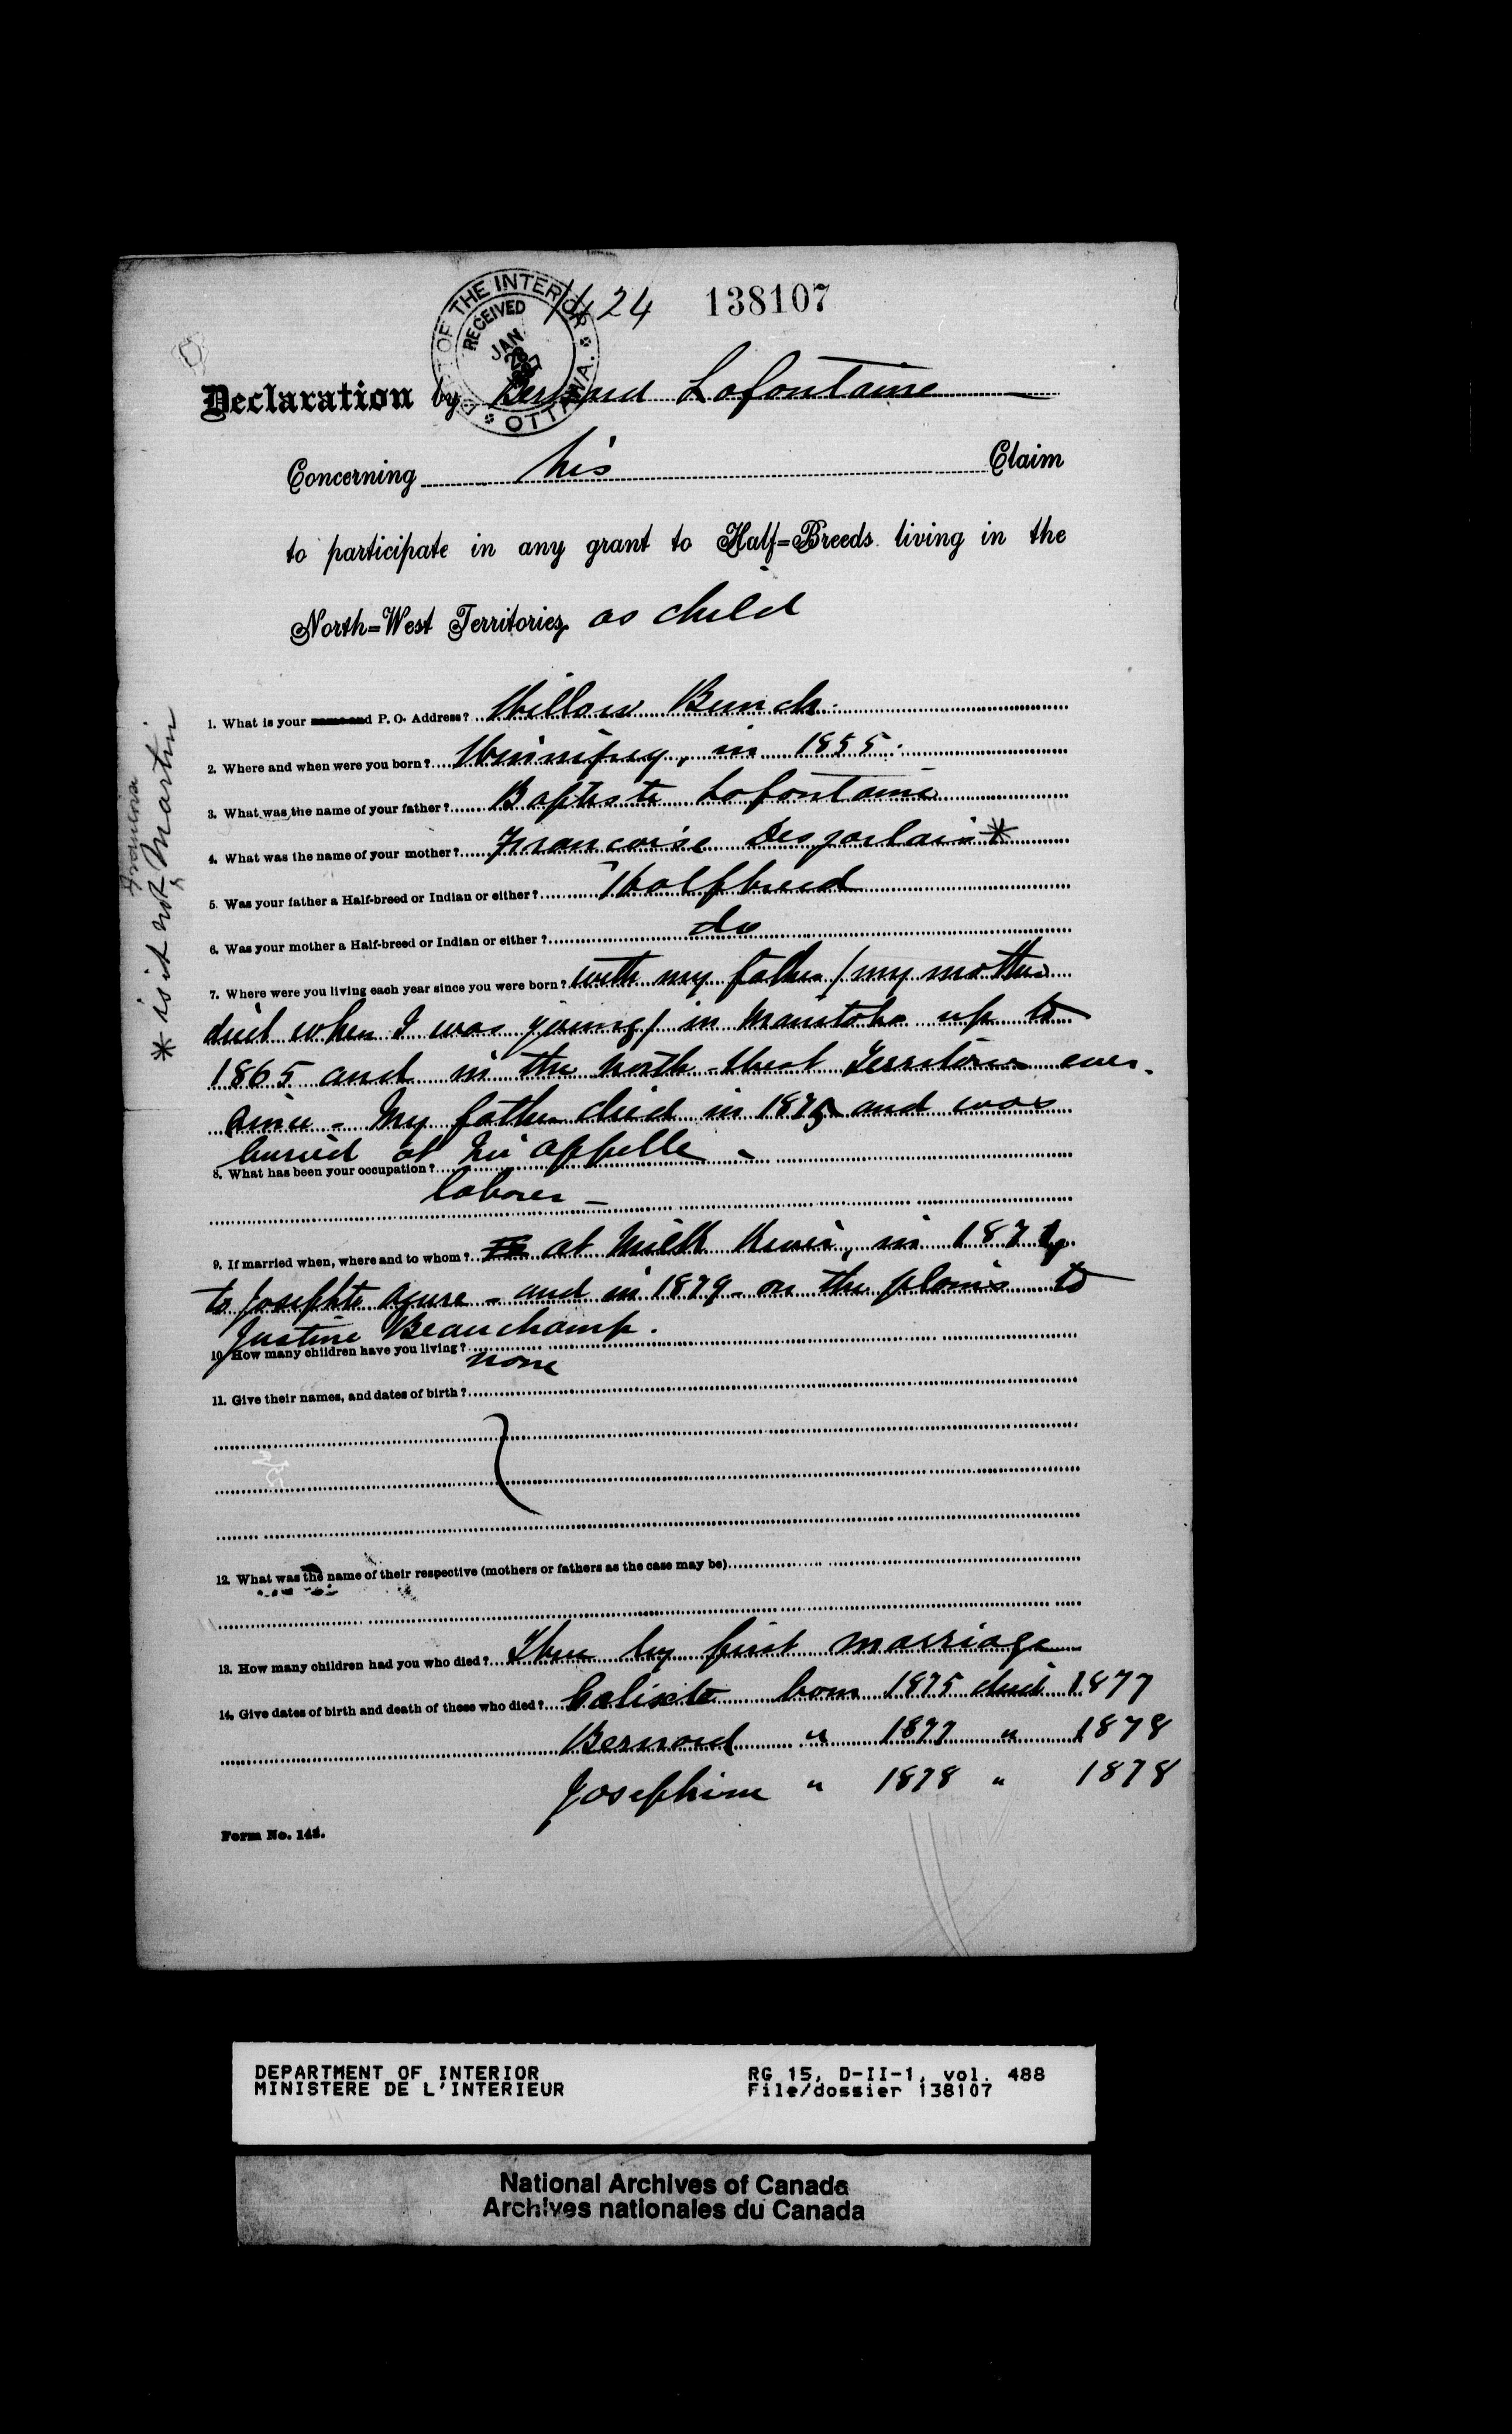 1424 138107
DEPT OF THE INTERIOR
RECEIVED
JAN
28
1887
OTTAWA.
Declaration by Bernard Lafontaine
Concerning his Claim
to participate in any grant to Half=Breeds living in the
North=West Territories, as child
1. What is your name and P. O. Address? Willow Bunch.
2. Where and when were you born? Winnipeg, in 1855.
3. What was the name of your father? Baptiste Lafontaine
4. What was the name of your mother? Francoise Desjarlais *
5. Was your father a Half-breed or Indian or either? Halfbreed
6. Was your mother a Half-breed or Indian or either? do
7. Where were you living each year since you were born? with my father / my mother
died when I was young / in Manitoba up to
1865 and in the North-West Territories ever
since - My father died in 1875 and was
buried at Qu'appelle -
8. What has been your occupation?
laborer -
9. If married when, where and to whom? at Milk River, in 187
to Josephte Azure - and in 1879 - on the plains to
Justine Beauchamp.
10. How many children have you living? none
11. Give their names, and dates of birth?
12. What was the name of their respective (mothers or fathers as the case may be)
13. How many children had you who died? Three by first marriage
14. Give dates of birth and death of those who died? Calixte born 1875 died 1877
Bernard " 1877 " 1878
Josephine " 1878 " 1878
Form No. 143.
* is it not Martin
DEPARTMENT OF INTERIOR RG 15, D-II-1, vol. 488
MINISTERE DE L'INTERIEUR File/dossier 138107
National Archives of Canada
Archives nationales du Canada